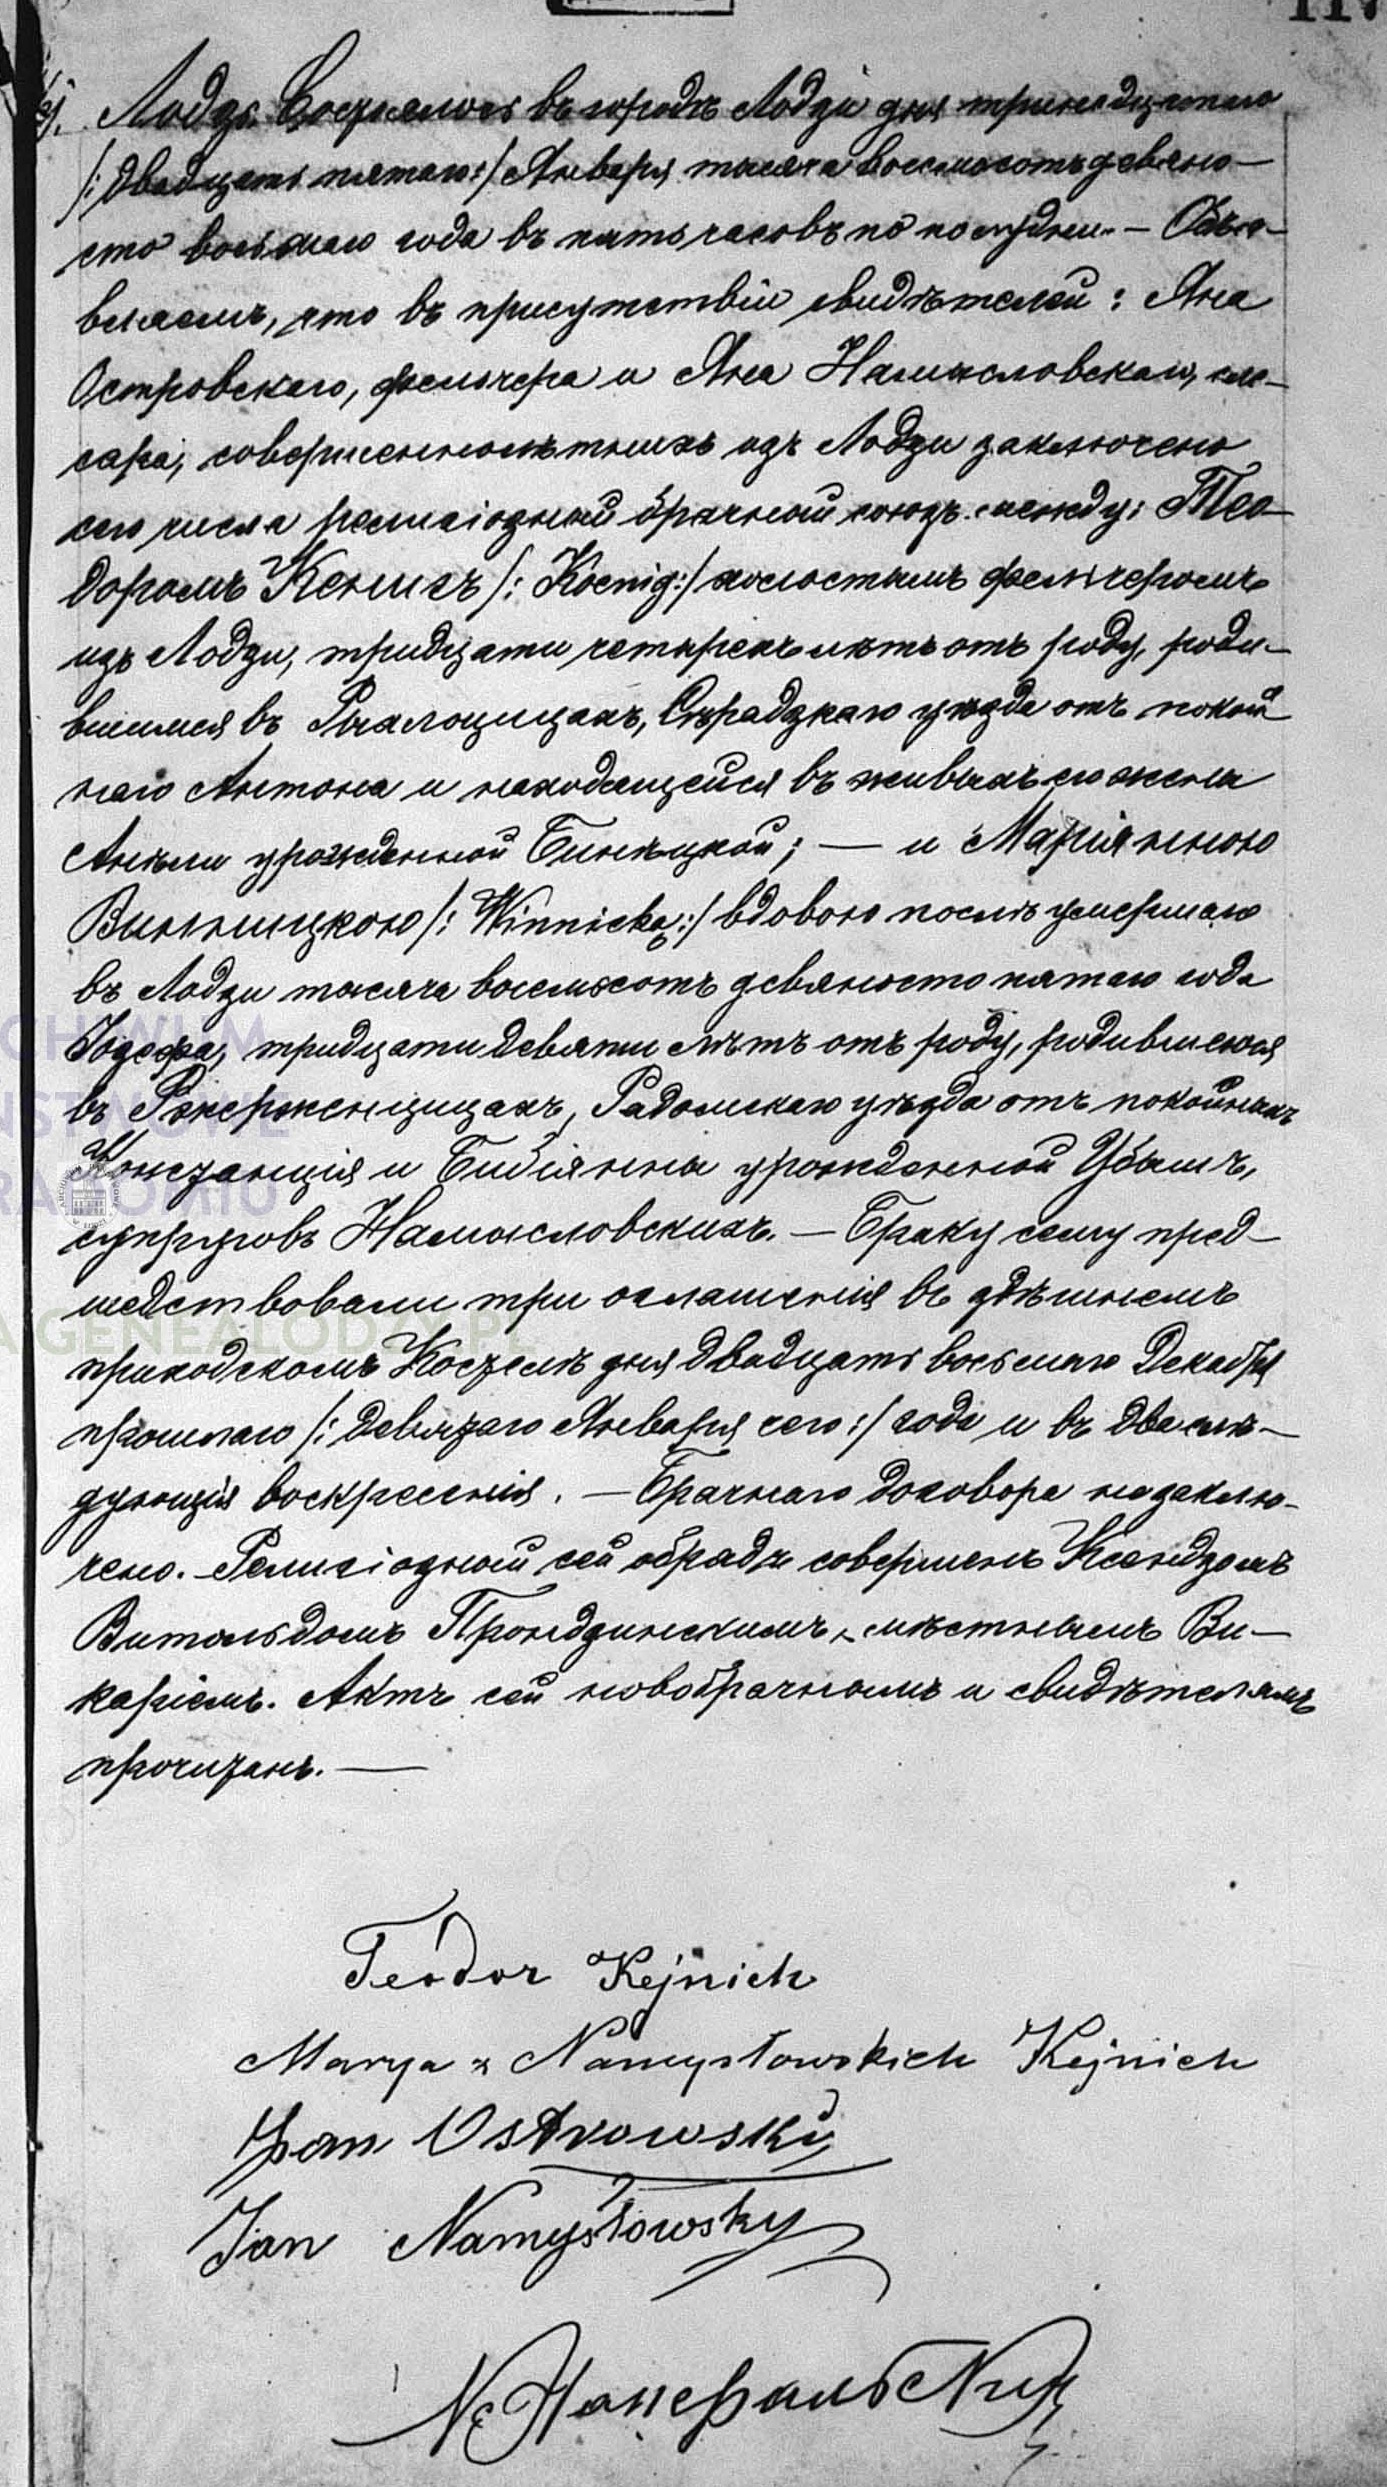 Лодзь. Состоялось въ городѣ Лодзи дня тринадцатаго
/: двадцать пятаго :/ Января тысяча восемьсотъ девяно-
сто восьмаго года въ пять часовъ по полудни. — Объя-
вляемъ, что въ присутствіи свидѣтелей: Яна
Островскаго, фельчера и Яна Намысловскаго, сле-
саря, совершеннолѣтнихъ изъ Лодзи заключено
сего числа религіозный брачный союзъ между: Тео-
доромъ Кенигъ /: Koenig :/ холостымъ фельчеромъ
изъ Лодзи, тридцати четырехъ лѣтъ отъ роду, роди-
вшимся въ Сѣрадзкаго уѣзда отъ покой-
наго Антона и находящейся въ живыхъ его жены
Анѣли урожденной Бинѣцкой; — и Маріянною
Винницкою /: Winnicką :/ вдовою послѣ умершаго
въ Лодзи тысяча восемьсотъ девяносто пятаго года
Іозефа, тридцати девяти лѣтъ отъ роду, родившеюся
въ Радомскаго уѣзда отъ покойныхъ
Констанція и Бибіянны урожденной Цбышъ,
супруговъ Намысловскихъ. — Браку сему пред-
шествовали три оглашенія въ здѣшнемъ
приходскомъ Костелѣ дня двадцать восьмаго Декабря
прошлаго /: девятаго Января сего :/ года и въ два слѣ-
дующія воскресенія. — Брачнаго договора не заклю-
чено. — Религіозный сей обрядъ совершенъ Ксендзомъ
Витольдомъ Прондзинскимъ, мѣстнымъ Ви-
каріемъ. Актъ сей новобрачнымъ и свидѣтелямъ
прочитанъ. —
Teodor Kejnich
Marya z Namysłowskich Kejnich
Jan Ostrowski
Jan Namysłowsky
ARCHIWUM
PAŃSTWOWE
W RADOMIU
GENEALODZY.PL